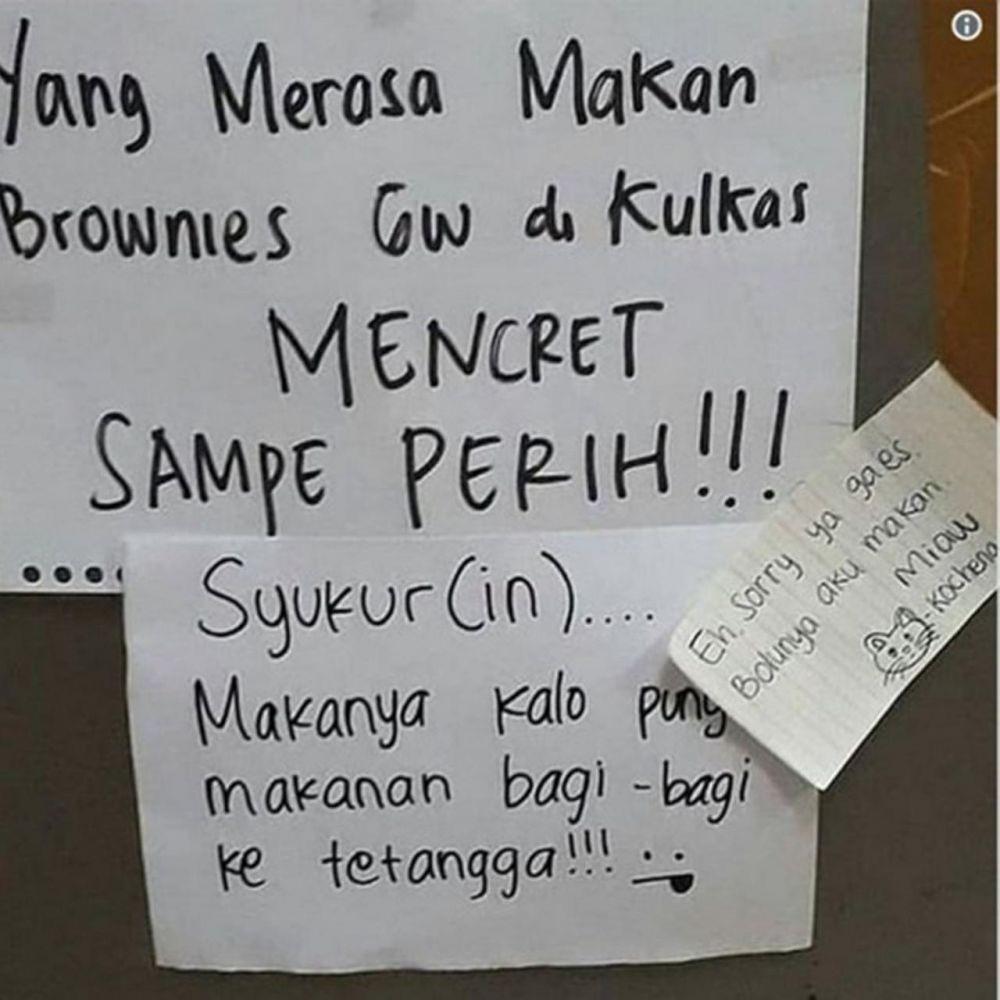 Yang Merasa Makan
Brownies Gw di Kulkas
MENCRET
SAMPE PERIH!!!
Syukur(in)....
Makanya kalo puny
makanan bagi-bagi
ke tetangga!!!
Eh.. Sorry ya gaes.
Bolunya aku makan.
Miaw
-kocheng